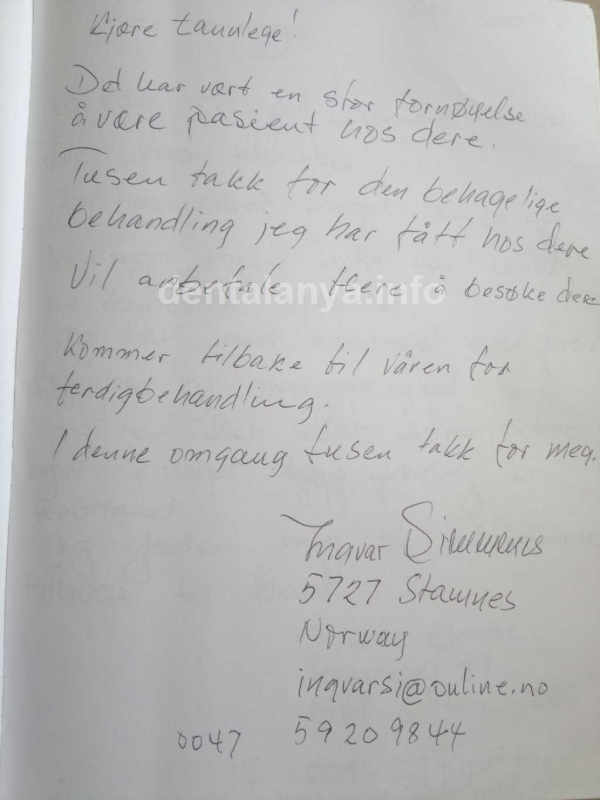 Kjære tannlege!
Det har vært en stor fornøyelse
å være pasient hos dere.
Tusen takk for den behagelige
behandling jeg har fått hos dere
Vil anbefale flere å besøke dere
dentalanya.info
Kommer tilbake til våren for
ferdigbehandling.
I denne omgang tusen takk for meg.
Ingvar
5727 Stamnes
Norway
ingvarsi@online.no
0047 59209844